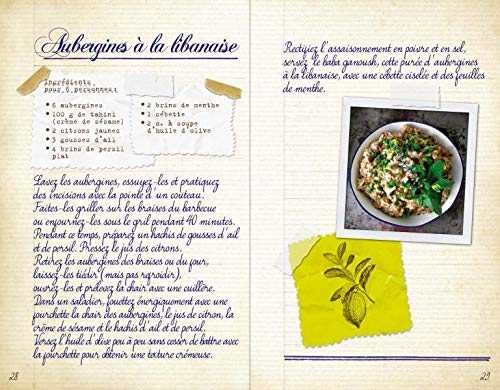 Aubergines à la libanaise
Ingrédients
pour 6 personnes
• 6 aubergines
• 100 g de tahini
(crème de sésame)
• 2 citrons jaunes
• 3 gousses d'ail
• 4 brins de persil
plat
• 2 brins de menthe
• 1 cébette
• 2 c. à soupe
d'huile d'olive
Lavez les aubergines, essuyez-les et pratiquez
des incisions avec la pointe d'un couteau.
Faites-les griller sur les braises du barbecue
ou enfournez-les sous le gril pendant 40 minutes.
Pendant ce temps, préparez un hachis de gousses d'ail
et de persil. Pressez le jus des citrons.
Retirez les aubergines des braises ou du four,
laissez-les tiédir (mais pas refroidir),
ouvrez-les et prélevez la chair avec une cuillère.
Dans un saladier, fouettez énergiquement avec une
fourchette la chair des aubergines, le jus de citron, la
crème de sésame et le hachis d'ail et de persil.
Versez l'huile d'olive peu à peu sans cesser de battre avec
la fourchette pour obtenir une texture crémeuse.
28
Rectifiez l'assaisonnement en poivre et en sel,
servez le baba ganoush, cette purée d'aubergines
à la libanaise, avec une cébette ciselée et des feuilles
de menthe.
29